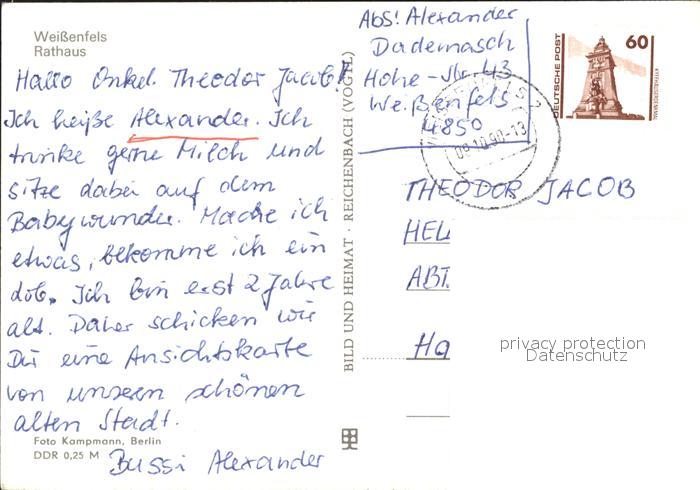 Weißenfels
Rathaus
Hallo Onkel Theodor Jacob!
Ich heiße Alexander. Ich
trinke gerne Milch und
sitze dabei auf dem
Babywunder. Mache ich
etwas, bekomme ich ein
Lob. Ich bin erst 2 Jahre
alt. Daher schicken wir
Dir eine Ansichtskarte
von unseren schönen
alten Stadt.
Bussi Alexander
Foto Kampmann, Berlin
DDR 0,25 M
BILD UND HEIMAT · REICHENBACH (VOGTL)
Abs! Alexander
Dademasch
Hohe-Str. 43
Weißenfels
4850
DEUTSCHE POST
60
09.10.90-13
THEODOR JACOB
HEL
ABT.
Ha
privacy protection
Datenschutz